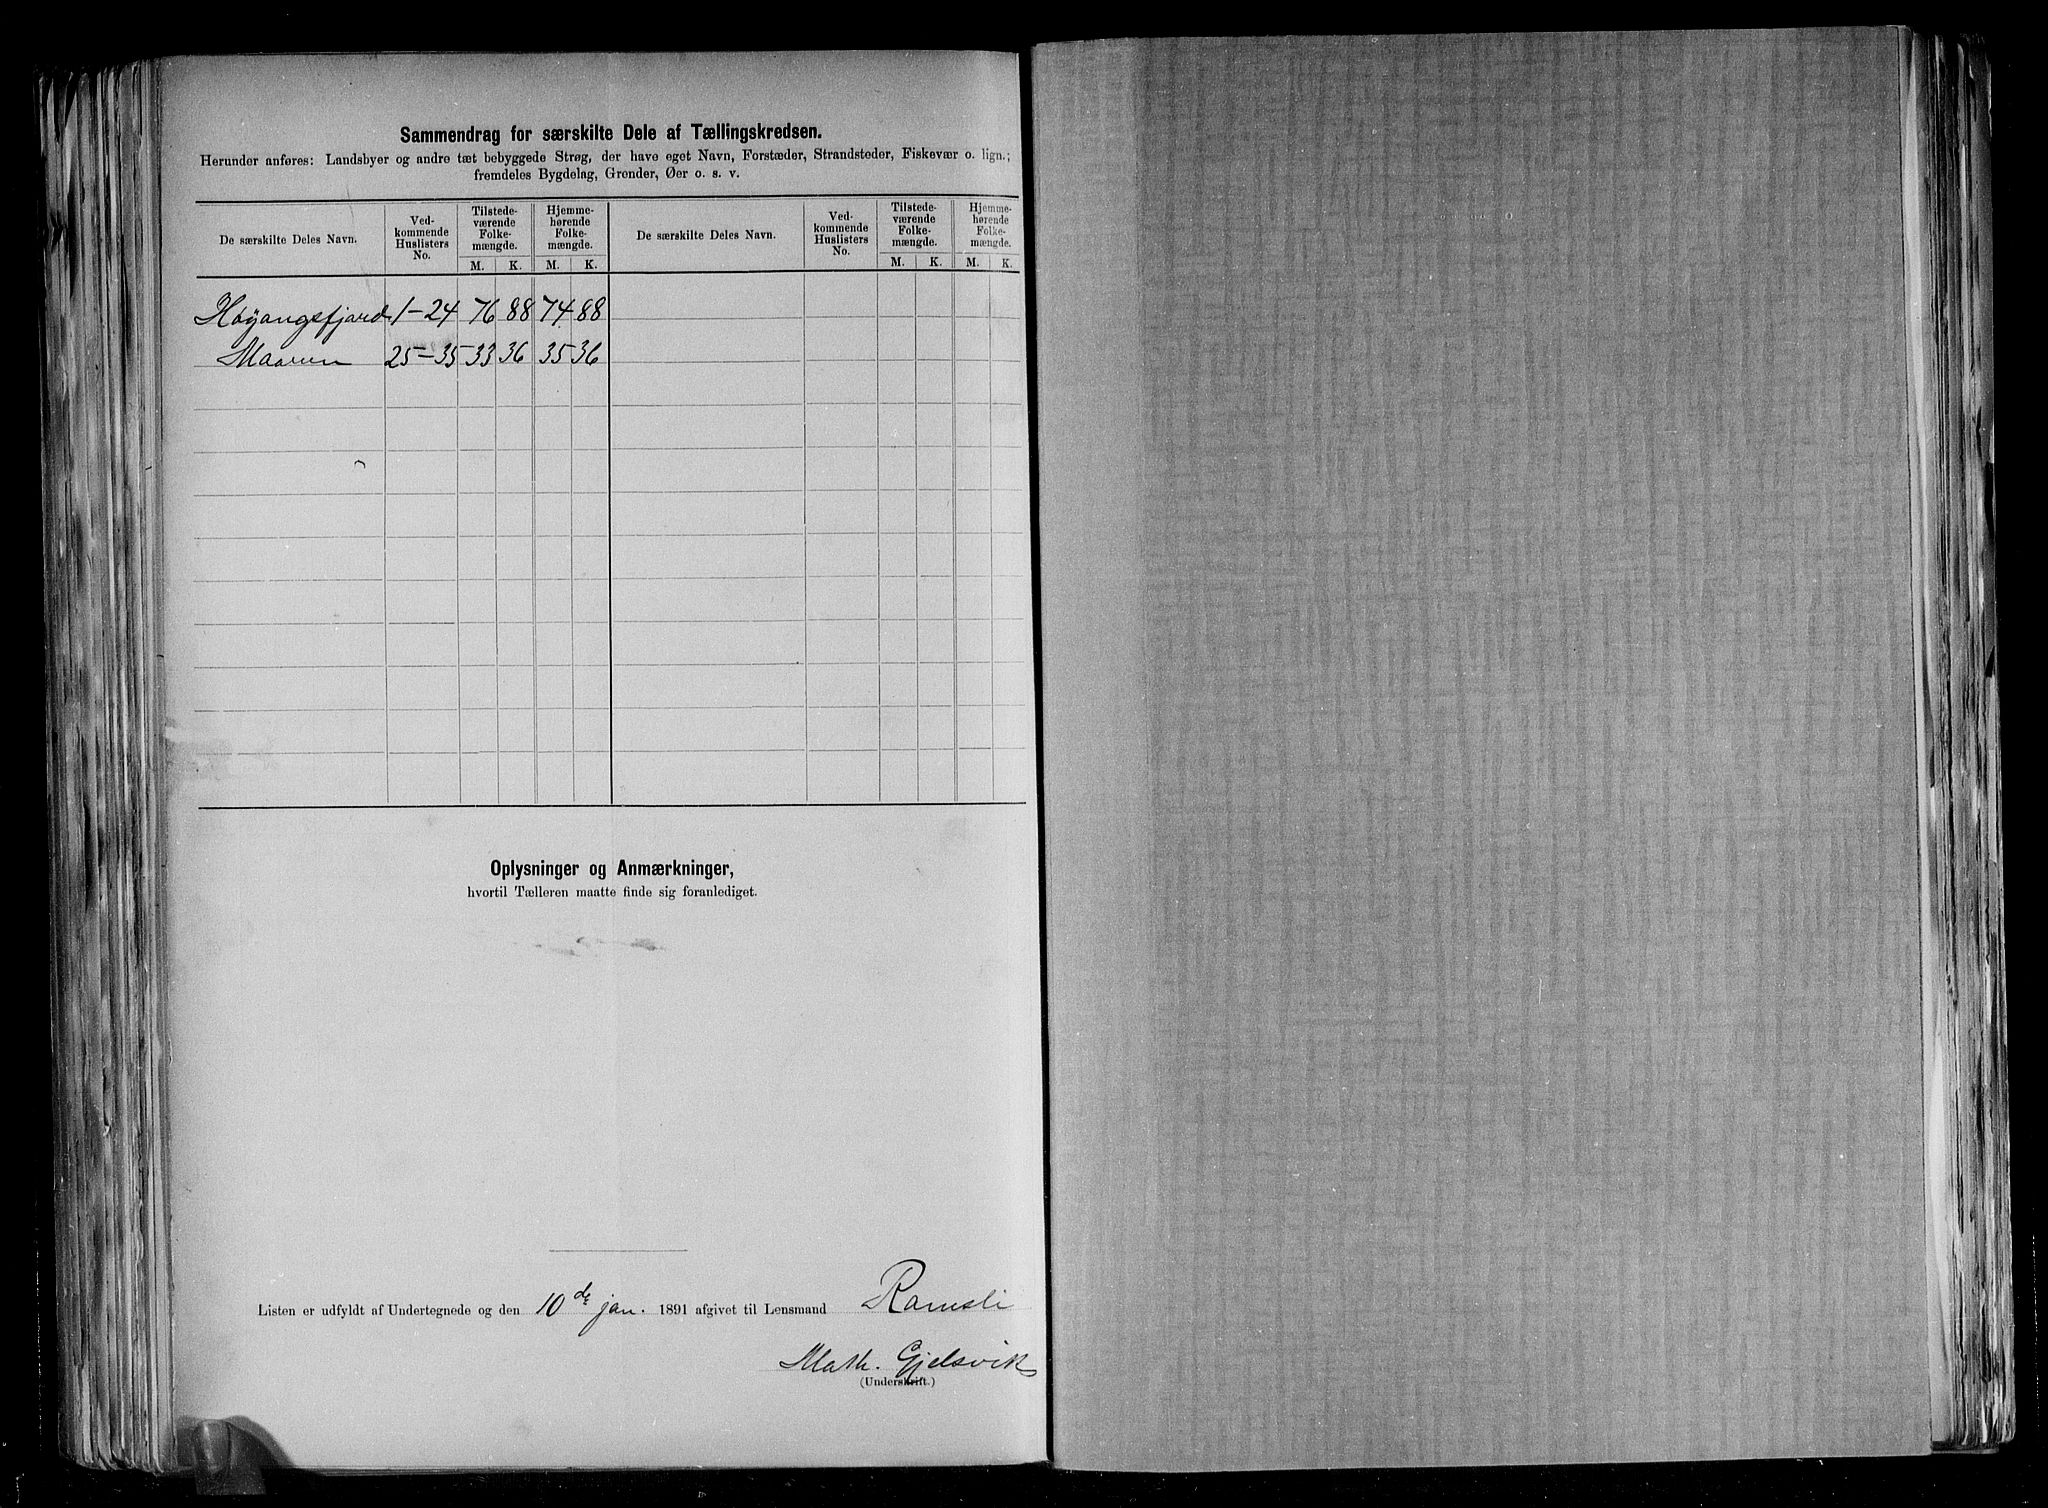 Sammendrag for særskilte Dele af Tællingskredsen.
Herunder anføres: Landsbyer og andre tæt bebyggede Strøg, der have eget Navn, Forstæder, Strandsteder, Fiskevær o. lign.;
fremdeles Bygdelag, Grender, Øer o. s. v.
De særskilte Deles Navn. Ved-kommende Huslisters No. Tilstede-værende Folke-mængde. M. K. Hjemme-hørende Folke-mængde. M. K. De særskilte Deles Navn. Ved-kommende Huslisters No. Tilstede-værende Folke-mængde. M. K. Hjemme-hørende Folke-mængde. M. K.
Høyangsfjord 1-24 76 88 74 88
Maaren 25-35 33 36 35 36
Oplysninger og Anmærkninger,
hvortil Tælleren maatte finde sig foranlediget.
Listen er udfyldt af Undertegnede og den 10de jan. 1891 afgivet til Lensmand Ramsli
Math. Gjelsvik
(Underskrift.)